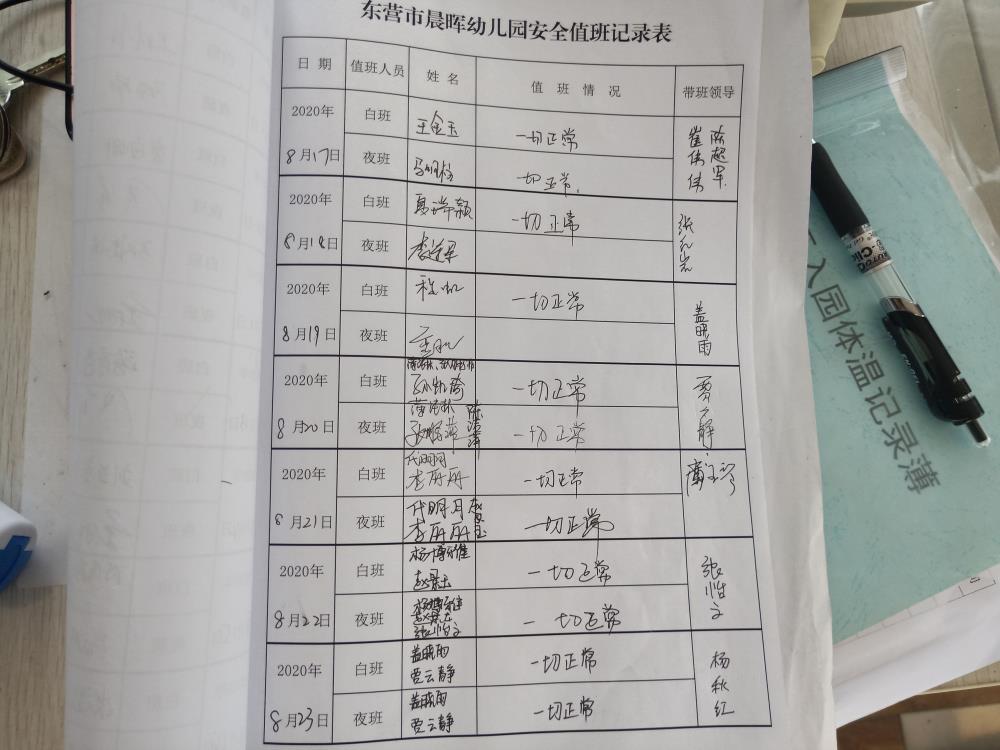 东营市晨晖幼儿园安全值班记录表
日 期 值班人员 姓 名 值 班 情 况 带班领导
2020年 8月17日 白班 王金玉 一切正常 崔伟伟 陈超军
夜班 一切正常.
2020年 8月18日 白班 一切正常
夜班
2020年 8月19日 白班 一切正常 盖晓雨
夜班
2020年 8月20日 白班 一切正常
夜班 一切正常
2020年 8月21日 白班 代明月 李丹丹 一切正常
夜班 代明月 李丹丹 一切正常
2020年 8月22日 白班 赵景玉 一切正常 张惟文
夜班 赵景玉 张惟文 一切正常
2020年 8月23日 白班 盖晓雨 贾云静 一切正常 杨秋红
夜班 盖晓雨 贾云静 一切正常
入园体温记录薄